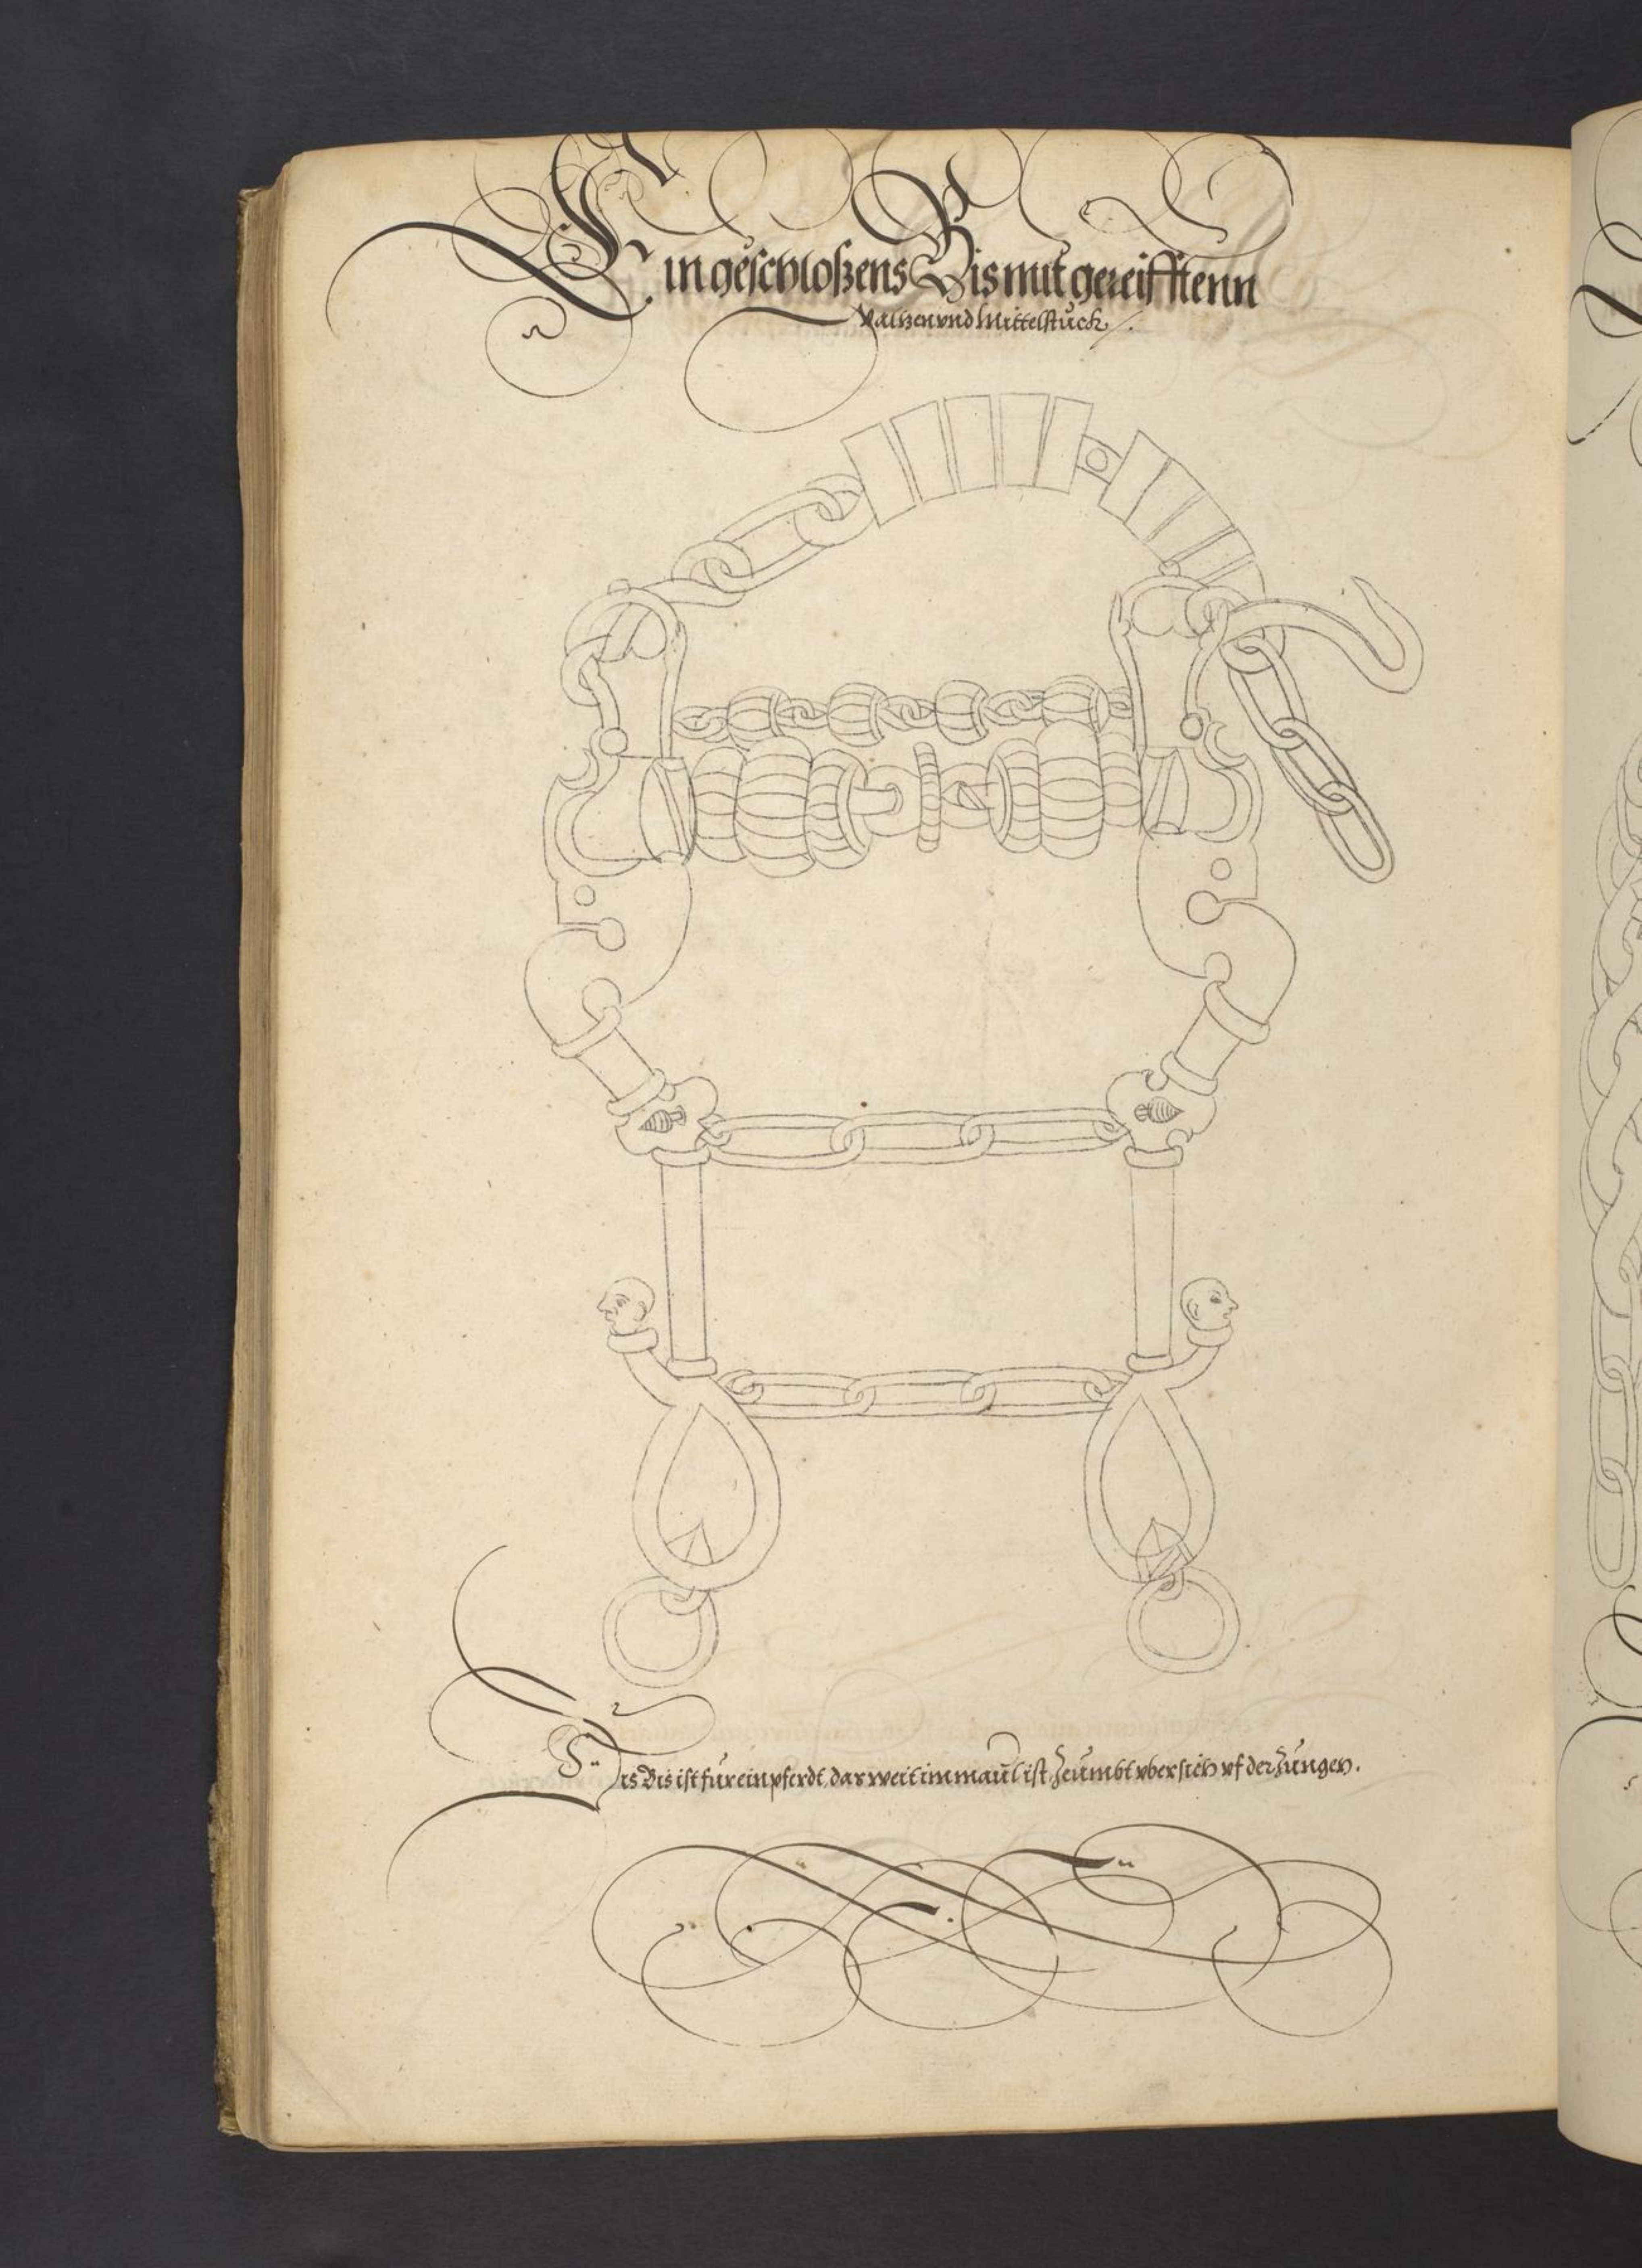 Ein geschloßens Bis mit gereifftenn
Walzen vnd Mittelstuck /.
Dis Bis ist für ein pferdt, dar weit im maul ist, Zeumbt vber sich vf der Zungen.